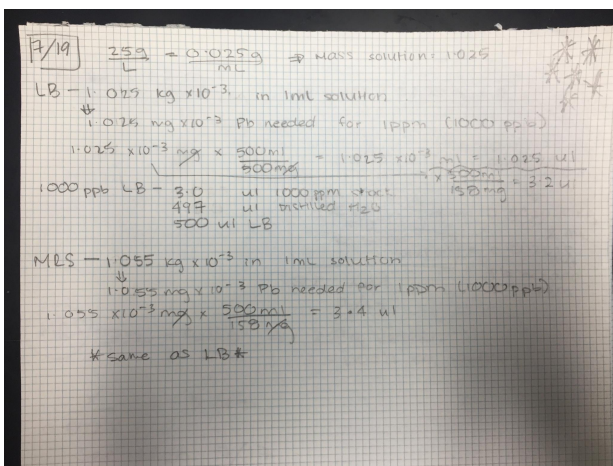 7/19 25g/L = 0.025g/mL ⇒ Mass solution: 1.025
LB - 1.025 kg x10⁻³ in 1mL solution
⇓
1.025 mg x10⁻³ Pb needed for 1ppm (1000 ppb)
1.025 x10⁻³ mg x 500ml/500mg = 1.025 x10⁻³ ml = 1.025 ul
x 500ml/158mg = 3.2 ul
1000 ppb LB - 3.0 ul 1000 ppm stock
497 ul distilled H₂O
500 ul LB
MRS - 1.055 kg x10⁻³ in 1mL solution
⇓
1.055 mg x10⁻³ Pb needed for 1ppm (1000ppb)
1.055 x10⁻³ mg x 500ml/158mg = 3.4 ul
*same as LB*